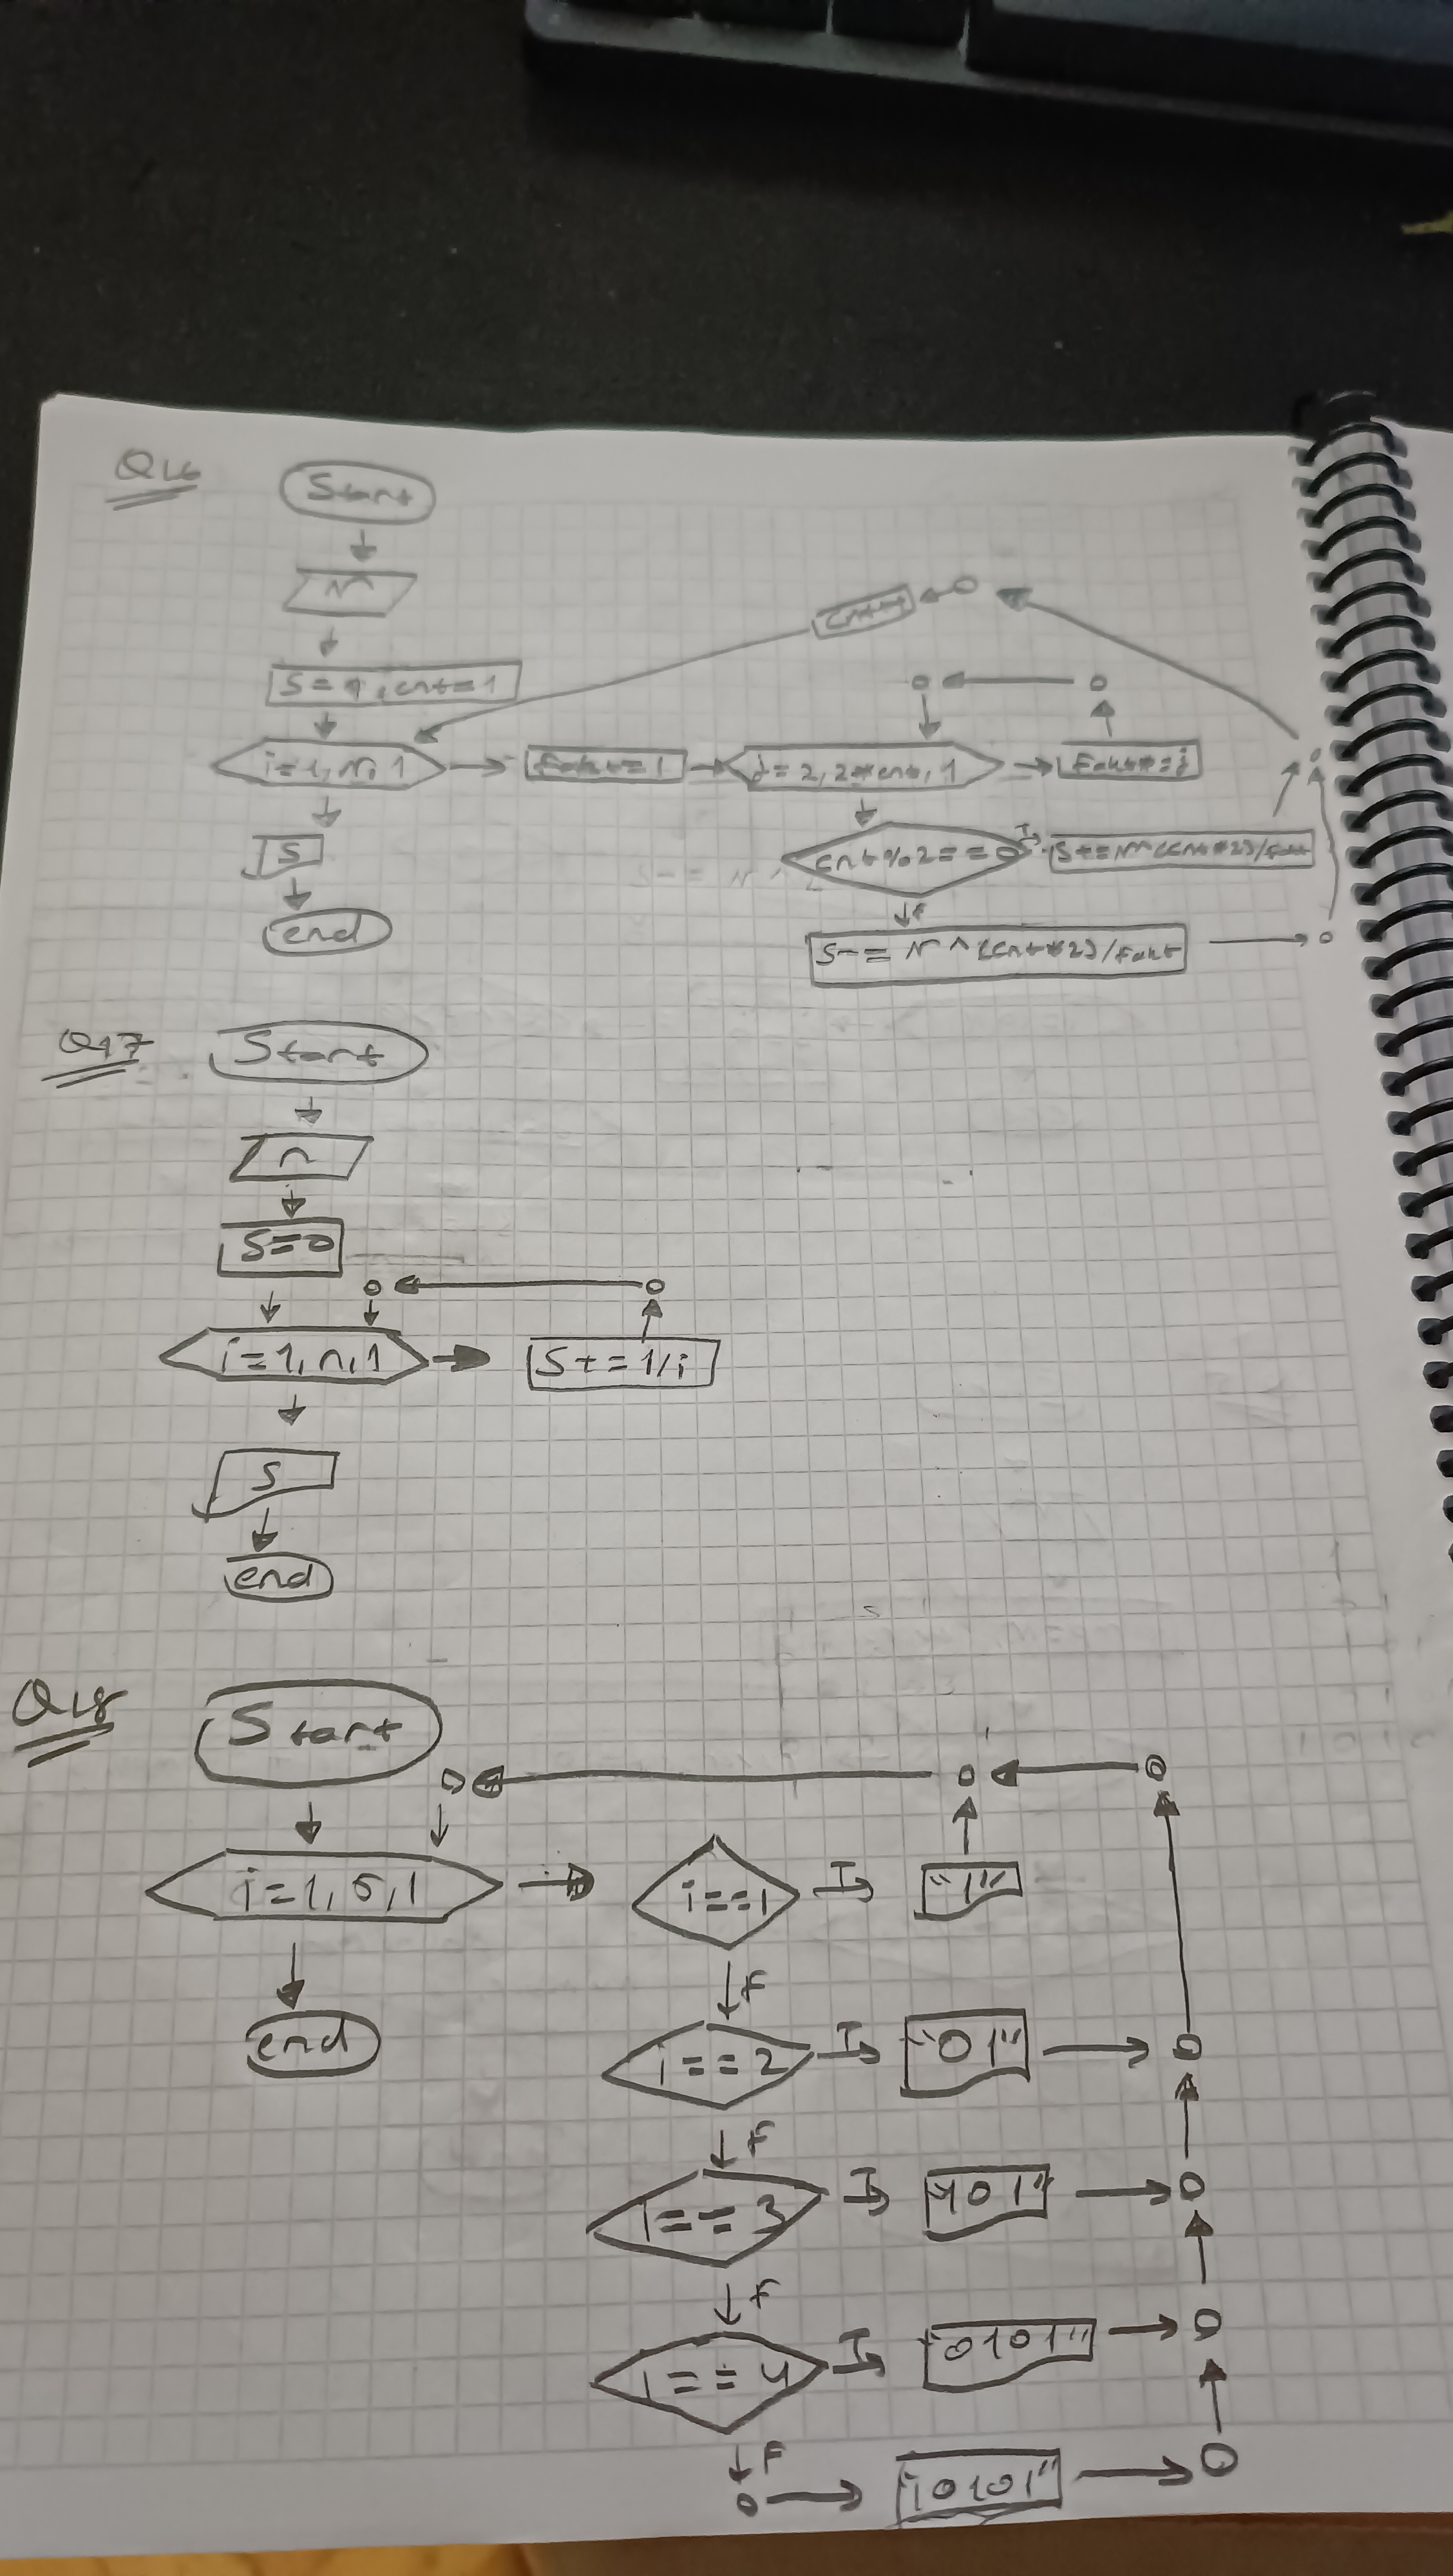 Q16
Start
N
cnt++
S=1, cnt=1
i=1, n, 1
fakt=1
j=2, 2*cnt, 1
fakt*=j
S
cnt%2==0
T
S+=N^(cnt*2)/fakt
F
end
S-=N^(cnt*2)/fakt
Q17
Start
n
S=0
i=1,n,1
S+=1/i
S
end
Q18
Start
i=1,5,1
i==1
T
"1"
F
end
i==2
T
"01"
F
i==3
T
"101"
F
i==4
T
"0101"
F
"10101"